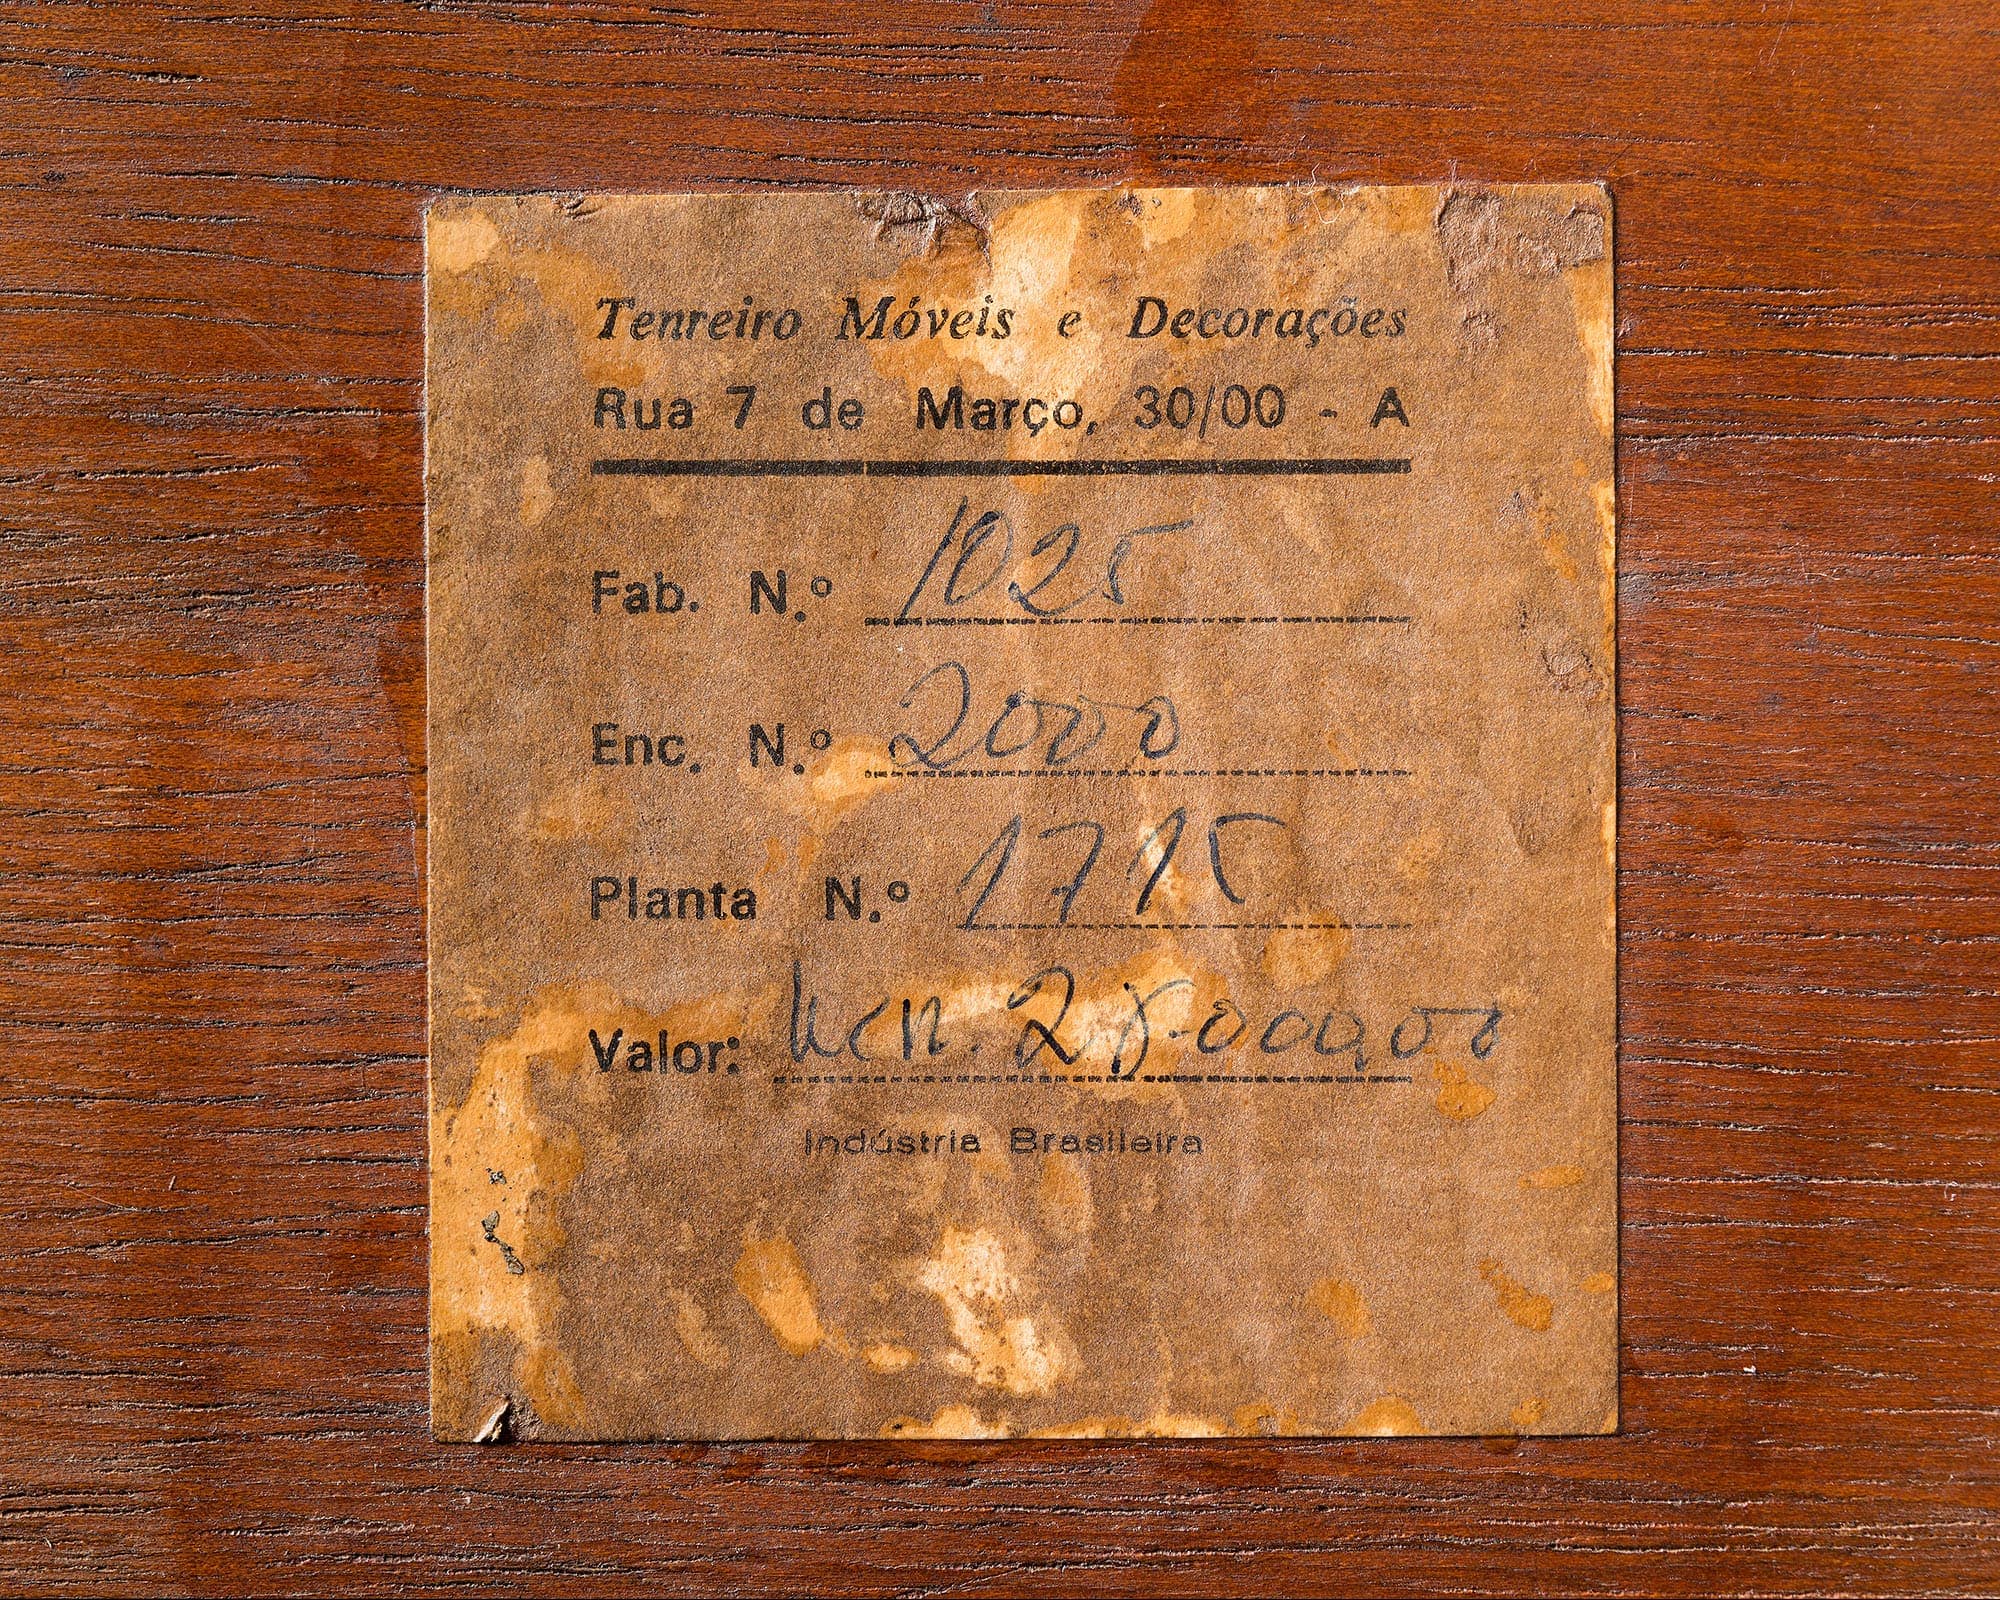 Tenreiro Móveis e Decorações
Rua 7 de Março, 30/00 - A
Fab. N.º 1025
Enc. N.º 2000
Planta N.º 1715
Valor:
Indústria Brasileira